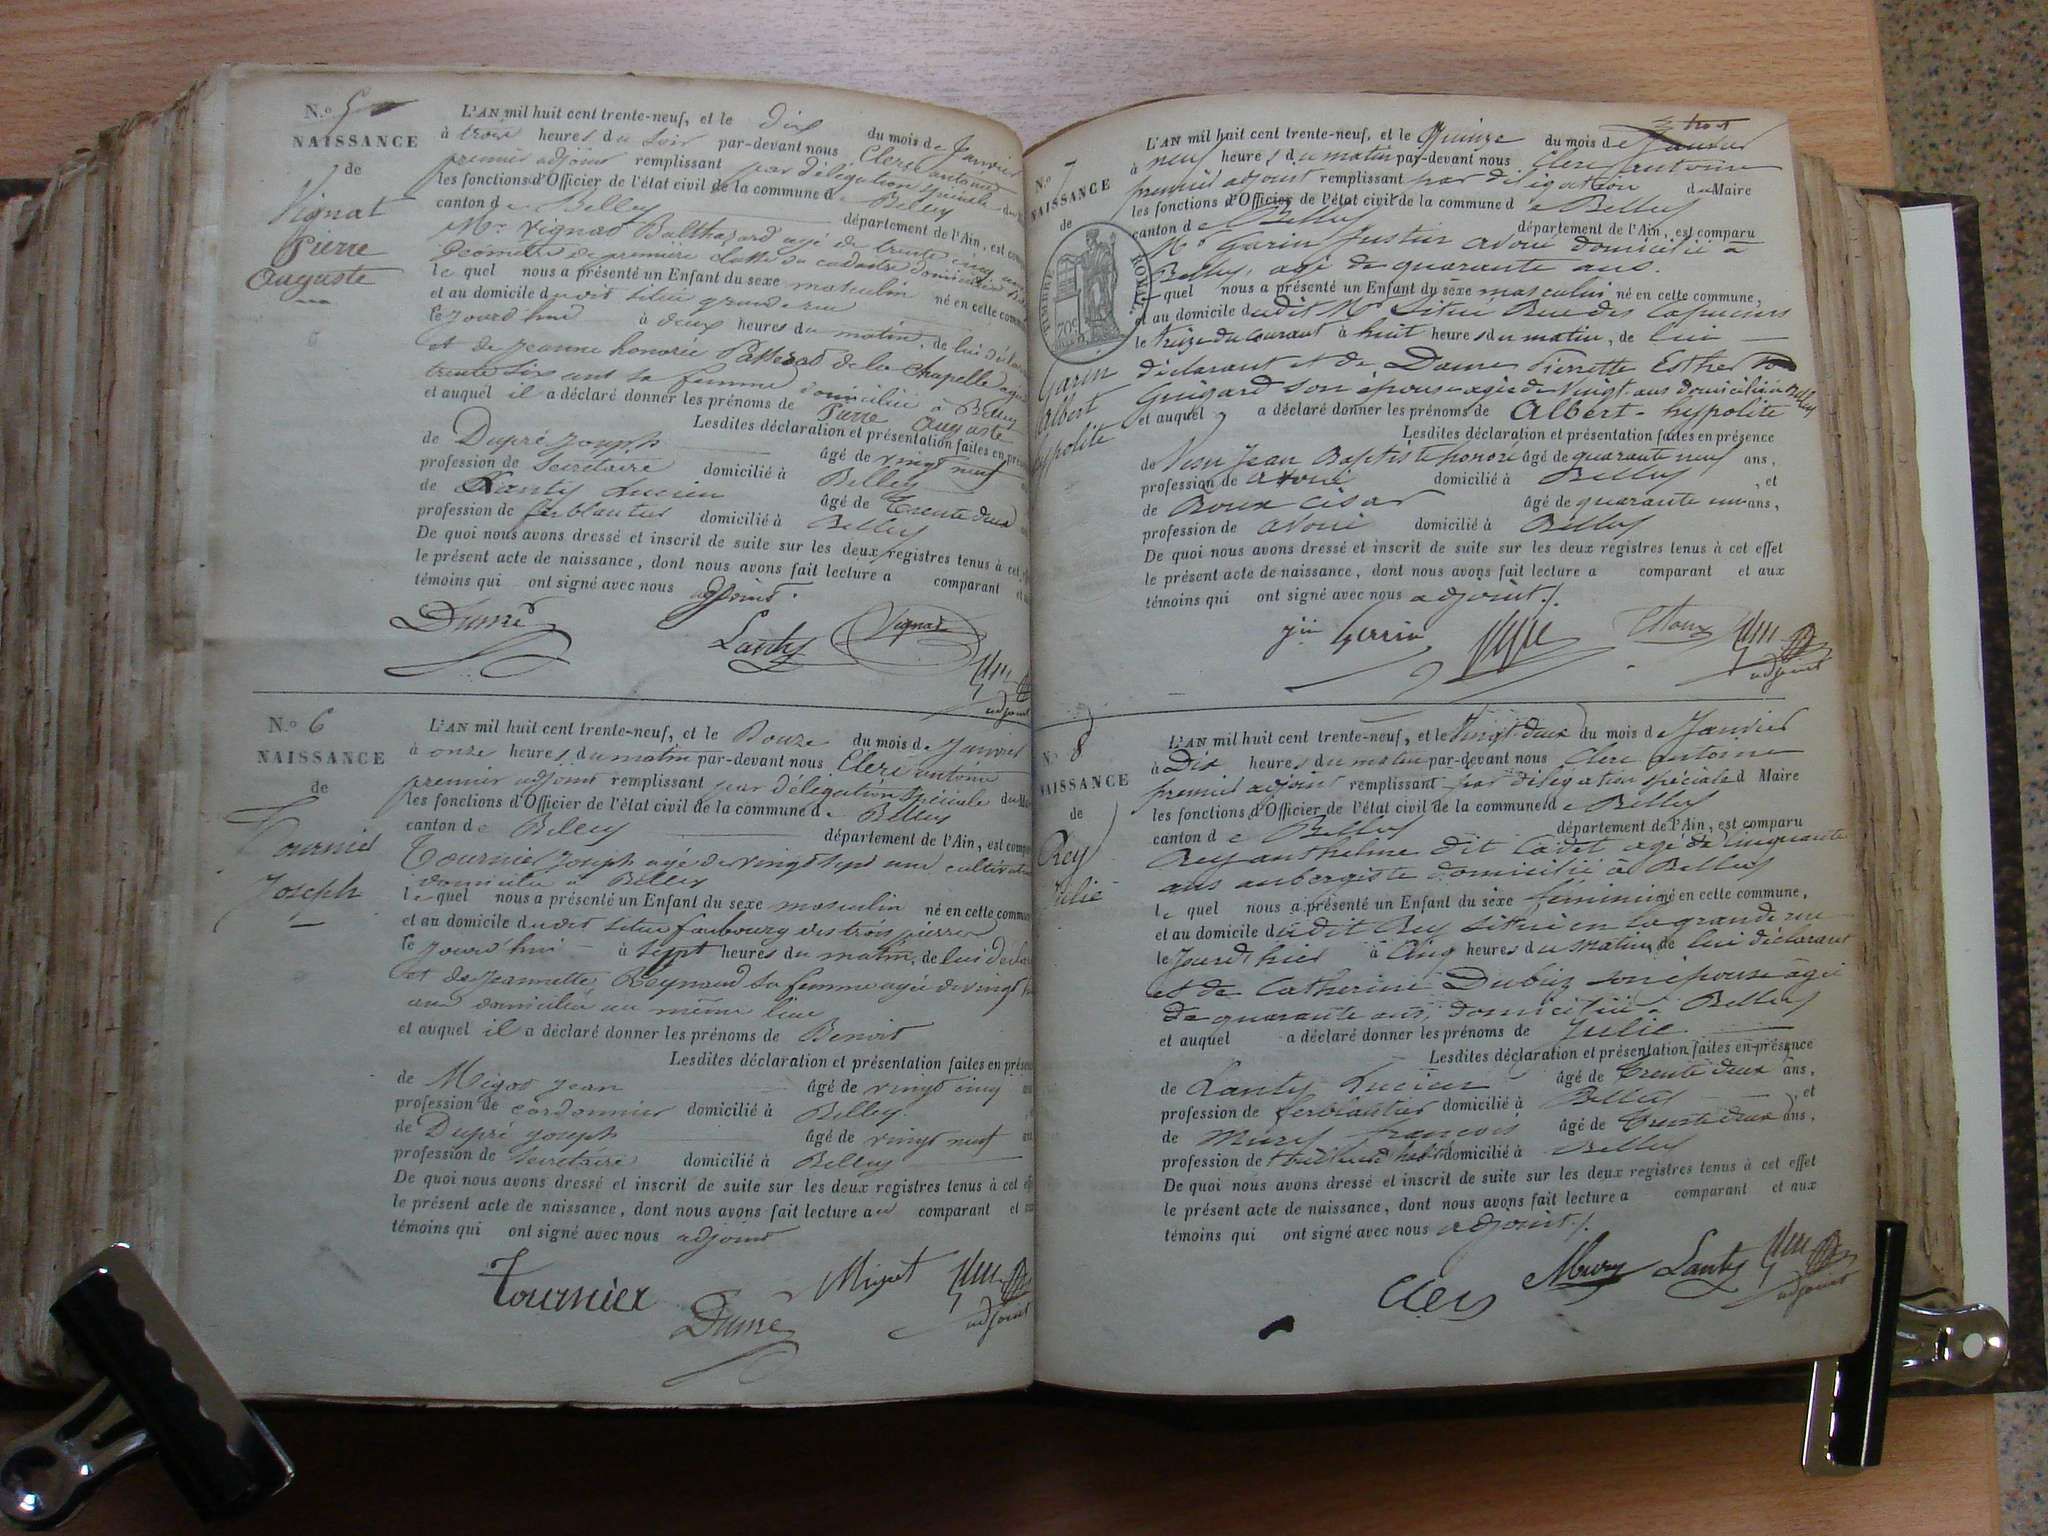 N.o 5
NAISSANCE
de
Vignat
Pierre
Auguste
L'AN mil huit cent trente-neuf, et le dix du mois de Janvier
à trois heures du soir par-devant nous Clerc antoine
premier adjoint remplissant par délégation spéciale du
les fonctions d'Officier de l'état civil de la commune de Belley
canton de Belley département de l'Ain, est com
Mr Vignat Balthazard agé de trente cinq ans
Géomètre de première classe du cadastre domicilié
lequel nous a présenté un Enfant du sexe masculin né en cette comm
et au domicile du dit situé grande rue
le jourd'hui à deux heures du matin, de lui déclarant
et de Jeanne honorée Passerat de la Chapelle agée
trente six ans sa femme domiciliée à Belley
et auquel il a déclaré donner les prénoms de Pierre Auguste
Lesdites déclaration et présentation faites en prés
de Dupré Joseph âgé de vingt neuf
profession de Secrétaire domicilié à Belley
de Lanty Lucien âgé de Trente deux
profession de ferblantier domicilié à Belley
De quoi nous avons dressé et inscrit de suite sur les deux registres tenus à cet
le présent acte de naissance, dont nous avons fait lecture a comparant et
témoins qui ont signé avec nous adjoint.
Dupré
Lanty
Vignat
adjoint
N.o 6
NAISSANCE
de
Tournier
Joseph
L'AN mil huit cent trente-neuf, et le Douze du mois de Janvier
à onze heures du matin par-devant nous Clerc antoine
premier adjoint remplissant par délégation spéciale du
les fonctions d'Officier de l'état civil de la commune de Belley
canton de Belley département de l'Ain, est comp
Tournier Joseph agé de vingt sept ans cultivateur
domicilié à Belley
lequel nous a présenté un Enfant du sexe masculin né en cette commun
et au domicile du dit situé faubourg des trois pierres
le jourd'hui à sept heures du matin, de lui décla
et de Jeannette Reynaud sa femme agée de vingt
ans domiciliée au même lieu
et auquel il a déclaré donner les prénoms de Benoit
Lesdites déclaration et présentation faites en prése
de Migot Jean âgé de vingt cinq
profession de cordonnier domicilié à Belley
de Dupré Joseph âgé de vingt neuf
profession de Secrétaire domicilié à Belley
De quoi nous avons dressé et inscrit de suite sur les deux registres tenus à cet eff
le présent acte de naissance, dont nous avons fait lecture au comparant et
témoins qui ont signé avec nous adjoint
Tournier
Dupré
Migot
adjoint
N.o 7
NAISSANCE
de
TIMBRE ROYAL
70c
Garin
Albert
hypolite
L'AN mil huit cent trente-neuf, et le Quinze du mois de Janvier
à neuf heures du matin par-devant nous Clerc antoine
premier adjoint remplissant par délégation du Maire
les fonctions d'Officier de l'état civil de la commune de Belley
canton de Belley département de l'Ain, est comparu
Mr Garin Justin avoué domicilié à
Belley, agé de quarante ans.
quel nous a présenté un Enfant du sexe masculin né en cette commune,
et au domicile dudit Mr situé Rue des Capucins
le treize du courant à huit heures du matin, de lui
déclarant et de Dame Pierrette Esther
Guigard son épouse agée de Vingt ans domiciliée à Belley
et auquel a déclaré donner les prénoms de Albert-hypolite
Lesdites déclaration et présentation faites en présence
de Jean Baptiste honoré âgé de quarante neuf ans,
profession de avoué domicilié à Belley, et
de Roux César âgé de quarante un ans,
profession de avoué domicilié à Belley
De quoi nous avons dressé et inscrit de suite sur les deux registres tenus à cet effet
le présent acte de naissance, dont nous avons fait lecture a comparant et aux
témoins qui ont signé avec nous adjoint.
adjoint
N.o 8
NAISSANCE
de
Rey
Julie
L'AN mil huit cent trente-neuf, et le Vingt-deux du mois de Janvier
à Dix heures du matin par-devant nous Clerc antoine
premier adjoint remplissant par délégation spéciale d Maire
les fonctions d'Officier de l'état civil de la commune de Belley
canton de Belley département de l'Ain, est comparu
Rey anthelme dit Cadet agé de Cinquante
ans aubergiste domicilié à Belley
lequel nous a présenté un Enfant du sexe féminin né en cette commune,
et au domicile dudit Rey situé en la grande rue
le jourd'hier à Cinq heures du matin, de lui déclarant
et de Catherine Dubiez son épouse âgée
de quarante ans, domiciliée à Belley
et auquel a déclaré donner les prénoms de Julie
Lesdites déclaration et présentation faites en présence
de Lanty Lucien âgé de Trente deux ans,
profession de ferblantier domicilié à Belley, et
de Murys françois âgé de Trente deux ans,
profession de domicilié à Belley
De quoi nous avons dressé et inscrit de suite sur les deux registres tenus à cet effet
le présent acte de naissance, dont nous avons fait lecture a comparant et aux
témoins qui ont signé avec nous adjoint.
Lanty
adjoint